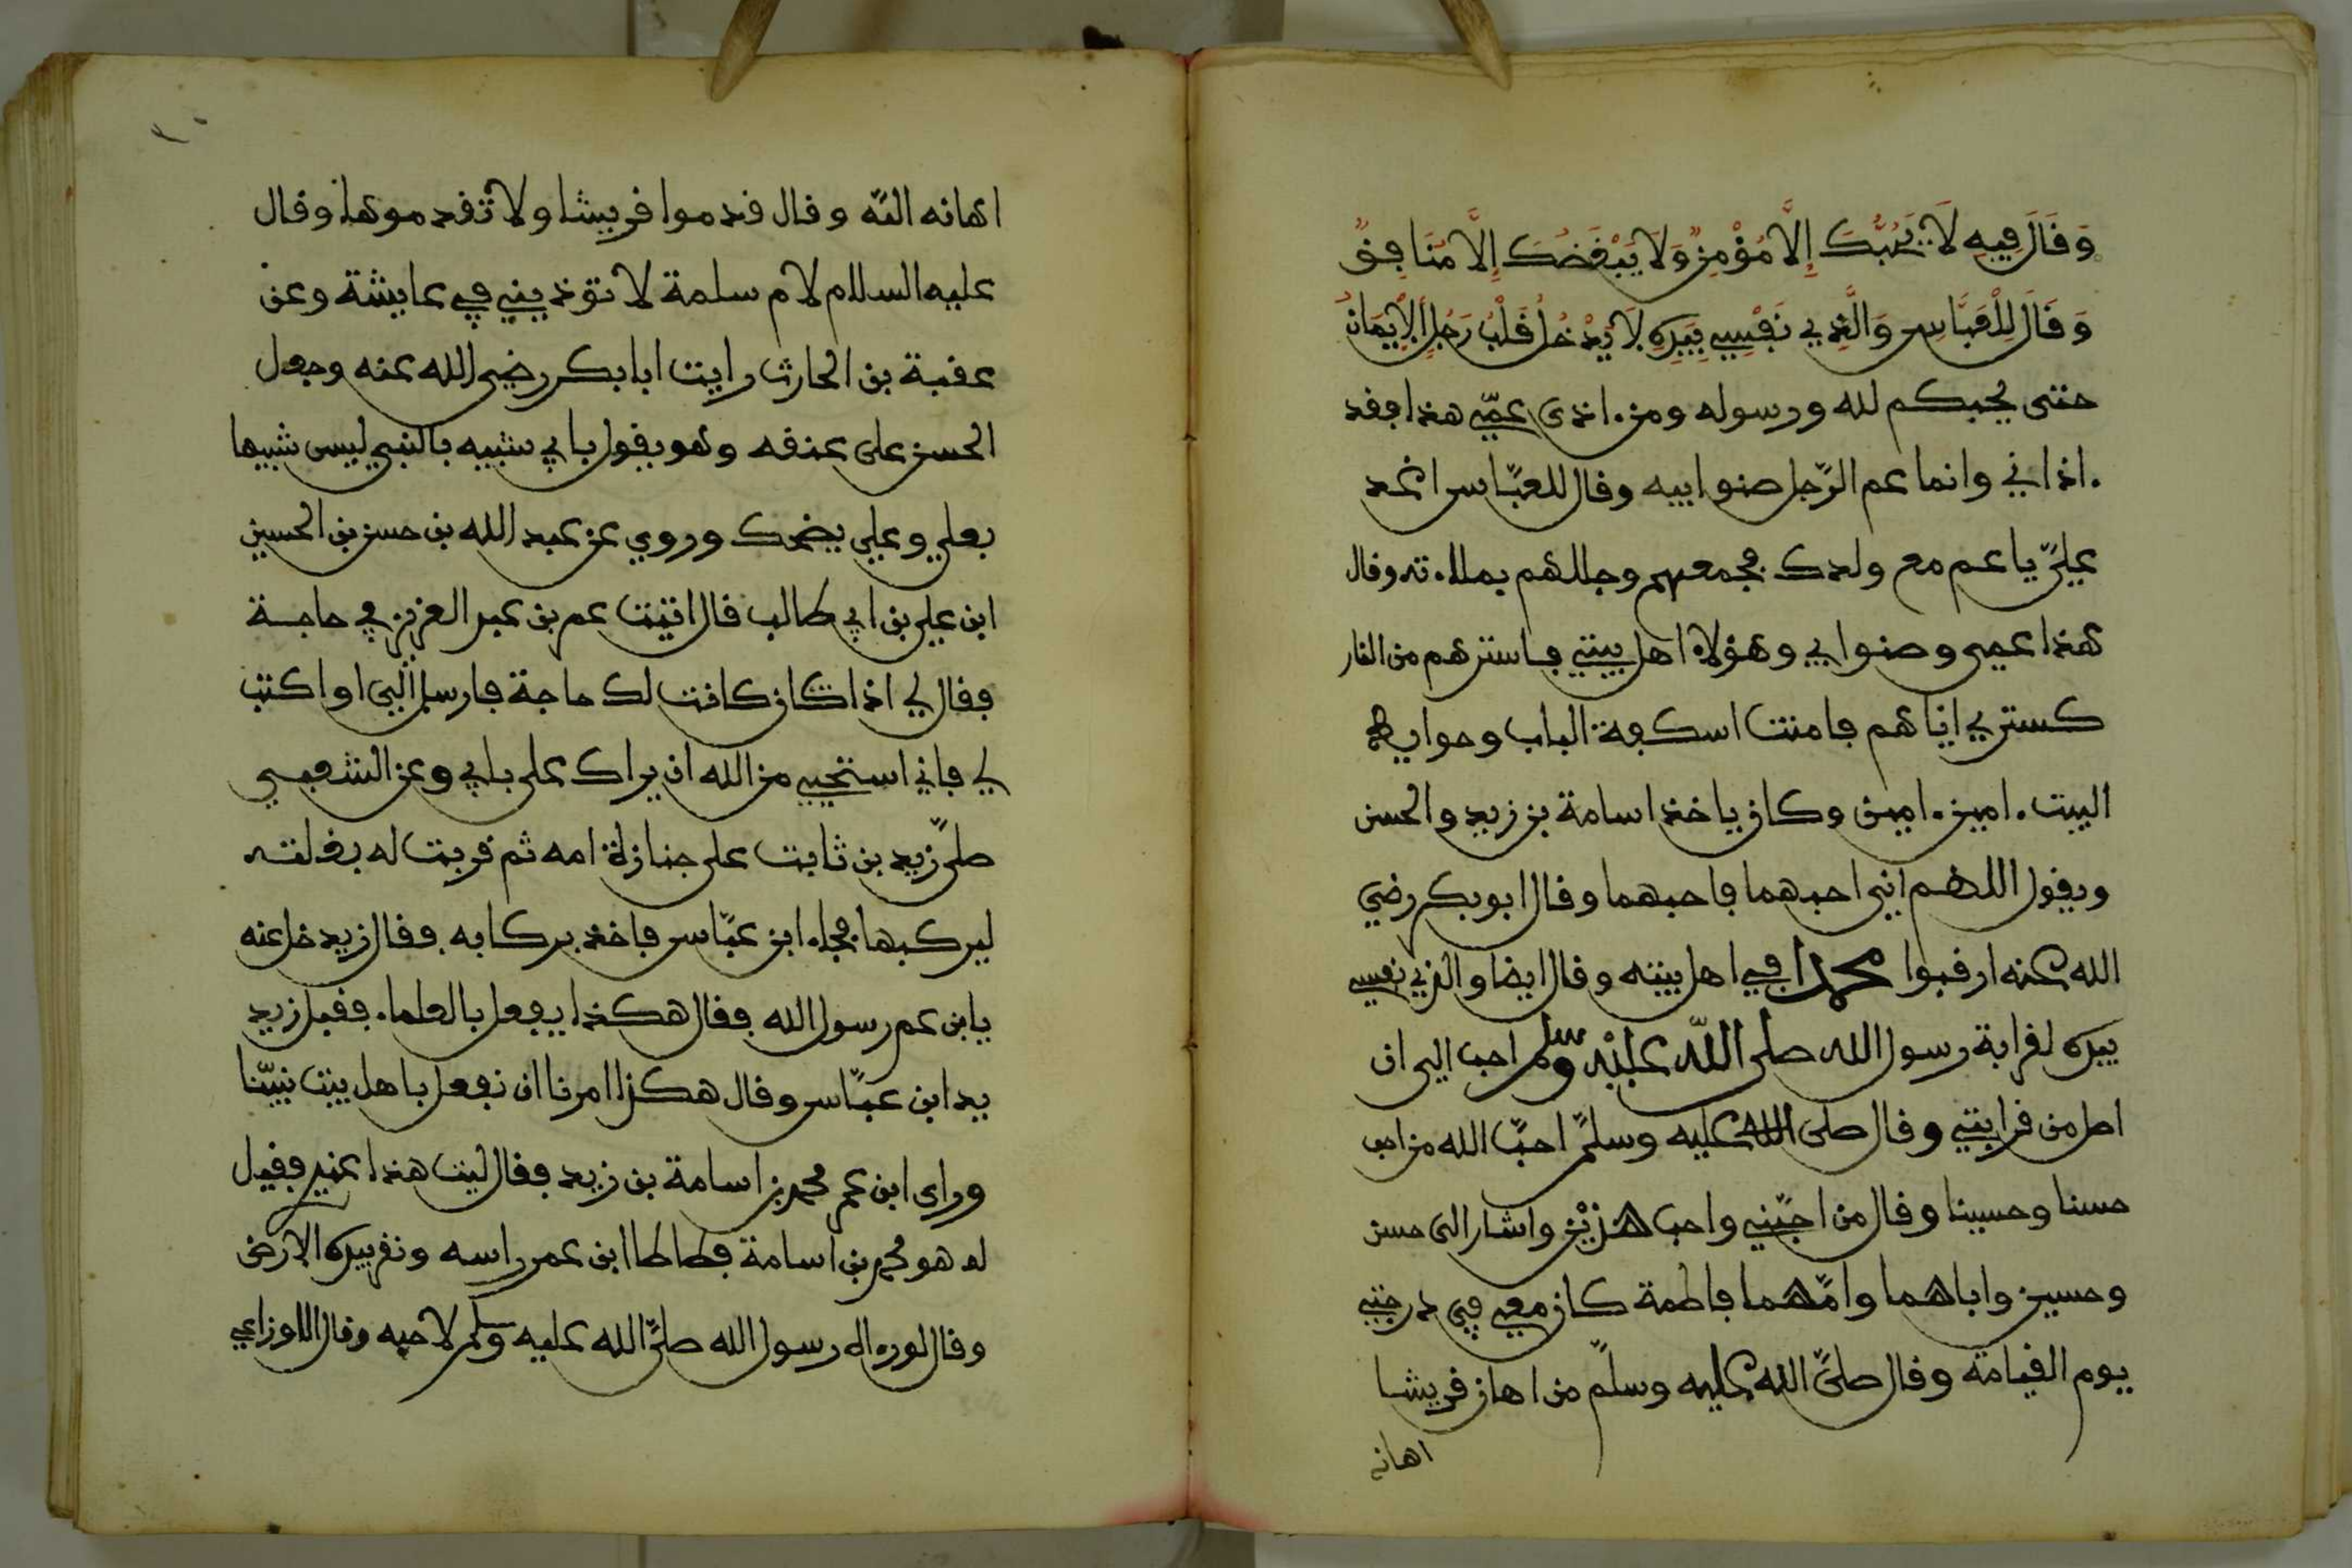 وَقَالَ فِيهِ لَا يُحِبُّكَ إِلَّا مُؤْمِنٌ وَلَا يَبْغَضُكَ إِلَّا مُنَافِقٌ
وَقَالَ لِلْعَبَّاسِ وَالَّذِي نَفْسِي بِيَدِهِ لَا يَدْخُلُ قَلْبَ رَجُلٍ الْإِيمَانُ
حتى يحبكم لله ورسوله ومن اذى عمّي هذا فقد
اذاني وانما عم الرّجل صنو ابيه وقال للعبّاس اغد
عليّ يا عم مع ولدك فجمعهم وجللهم بملاءته وقال
هذا عمي وصنو ابي وهؤلاء اهل بيتي فاسترهم من النار
كستري اياهم فامنت اسكفة الباب وحوايط
البيت امين امين وكان ياخذ اسامة بن زيد والحسن
ويقول اللهم اني احبهما فاحبهما وقال ابو بكر رضي
الله عنه ارقبوا محمدا في اهل بيته وقال ايضا والذي نفسي
بيده لقرابة رسول الله صلى اللّه عليْه وسلم احب الي ان
اصل من قرابتي وقال صلى الله عليه وسلّم احبّ الله من احب
حسنا وحسينا وقال من احبّني واحب هذيْن واشار الى حسن
وحسين واباهما وامّهما فاطمة كان معي في درجتي
يوم القيامة وقال صلّى الله عليه وسلّم من اهان قريشا
اهانه
اهانه اللّه وقال قدموا قريشا ولا تقدموها وقال
عليه السلام لام سلمة لا توذيني في عايشة وعن
عقبة بن الحارث رايت ابا بكر رضي الله عنه وجعل
الحسن على عنقه وهو يقول بابي شبيه بالنبي ليس شبيها
بعلي وعلي يضحك وروي عن عبد الله بن حسن بن الحسين
ابن علي بن ابي طالب قال اتيت عمر بن عبد العزيز في حاجة
فقال لي اذا كان كانت لك حاجة فارسل الي او اكتب
لي فاني استحيي من الله ان يراك على بابي وعن الشعبي
صلّى زيد بن ثابت على جنازة امه ثم قربت له بغلته
ليركبها فجاء ابن عبّاس فاخذ بركابه فقال زيد خل عنه
يا بن عم رسول الله فقال هكذا يفعل بالعلماء فقبل زيد
يد ابن عبّاس وقال هكذا امرنا ان نفعل باهل بيت نبيّنا
وراى ابن عمر محمد بن اسامة بن زيد فقال ليت هذا عندي فقيل
له هو محمد بن اسامة فطاطا ابن عمر راسه ونقر بيده الارض
وقال لو رءاه رسول الله صلّى الله عليه وسلم لاحبه وقال الاوزاعي